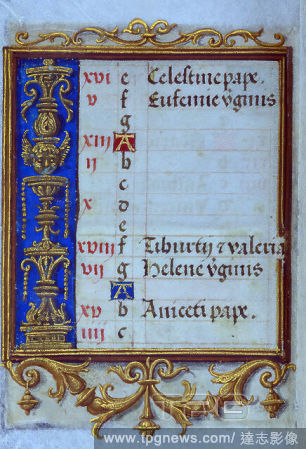 xvi e Celestine pape.
v f Eufemie v̄ginis
g
xiii A
ii b
c
x d
e
xviii f Tiburtij ⁊ valeria
vii g Helene v̄ginis
A
xv b Aniceti pape.
iiii c
www.tpgnews.com/ 達志影像